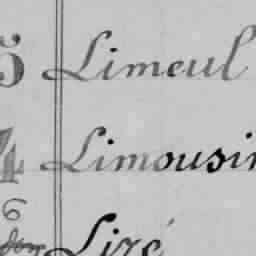 5 Limeul
4 Limousin
6
Liré